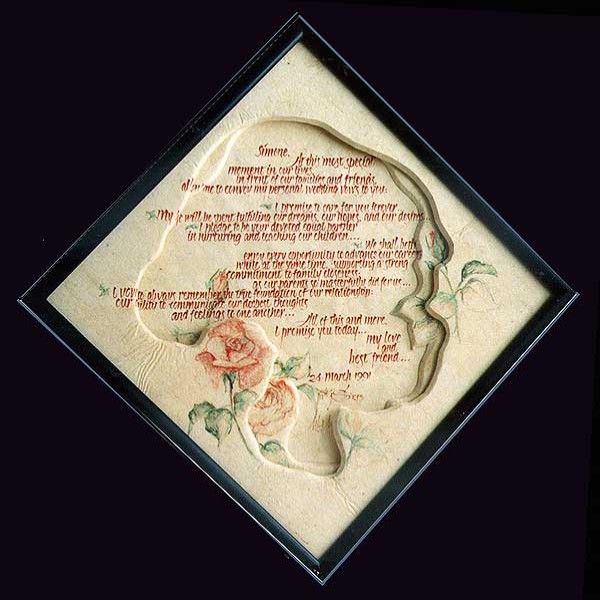 Simone,
At this most special
moment in our lives
in front of our families and friends,
allow me to convey my personal wedding vows to you:
I promise to care for you forever...
My life will be spent fulfilling our dreams, our hopes, and our desires...
I pledge to be your devoted equal partner
in nurturing and teaching our children...
We shall both
enjoy every opportunity to advance our careers
while at the same time, supporting a strong
commitment to family closeness;
as our parents so masterfully did for us...
I VOW to always remember the true foundation of our relationship:
our ability to communicate our deepest thoughts
and feelings to one another...
All of this and more,
I promise you today...
my love
and
best friend...
24 March 1991